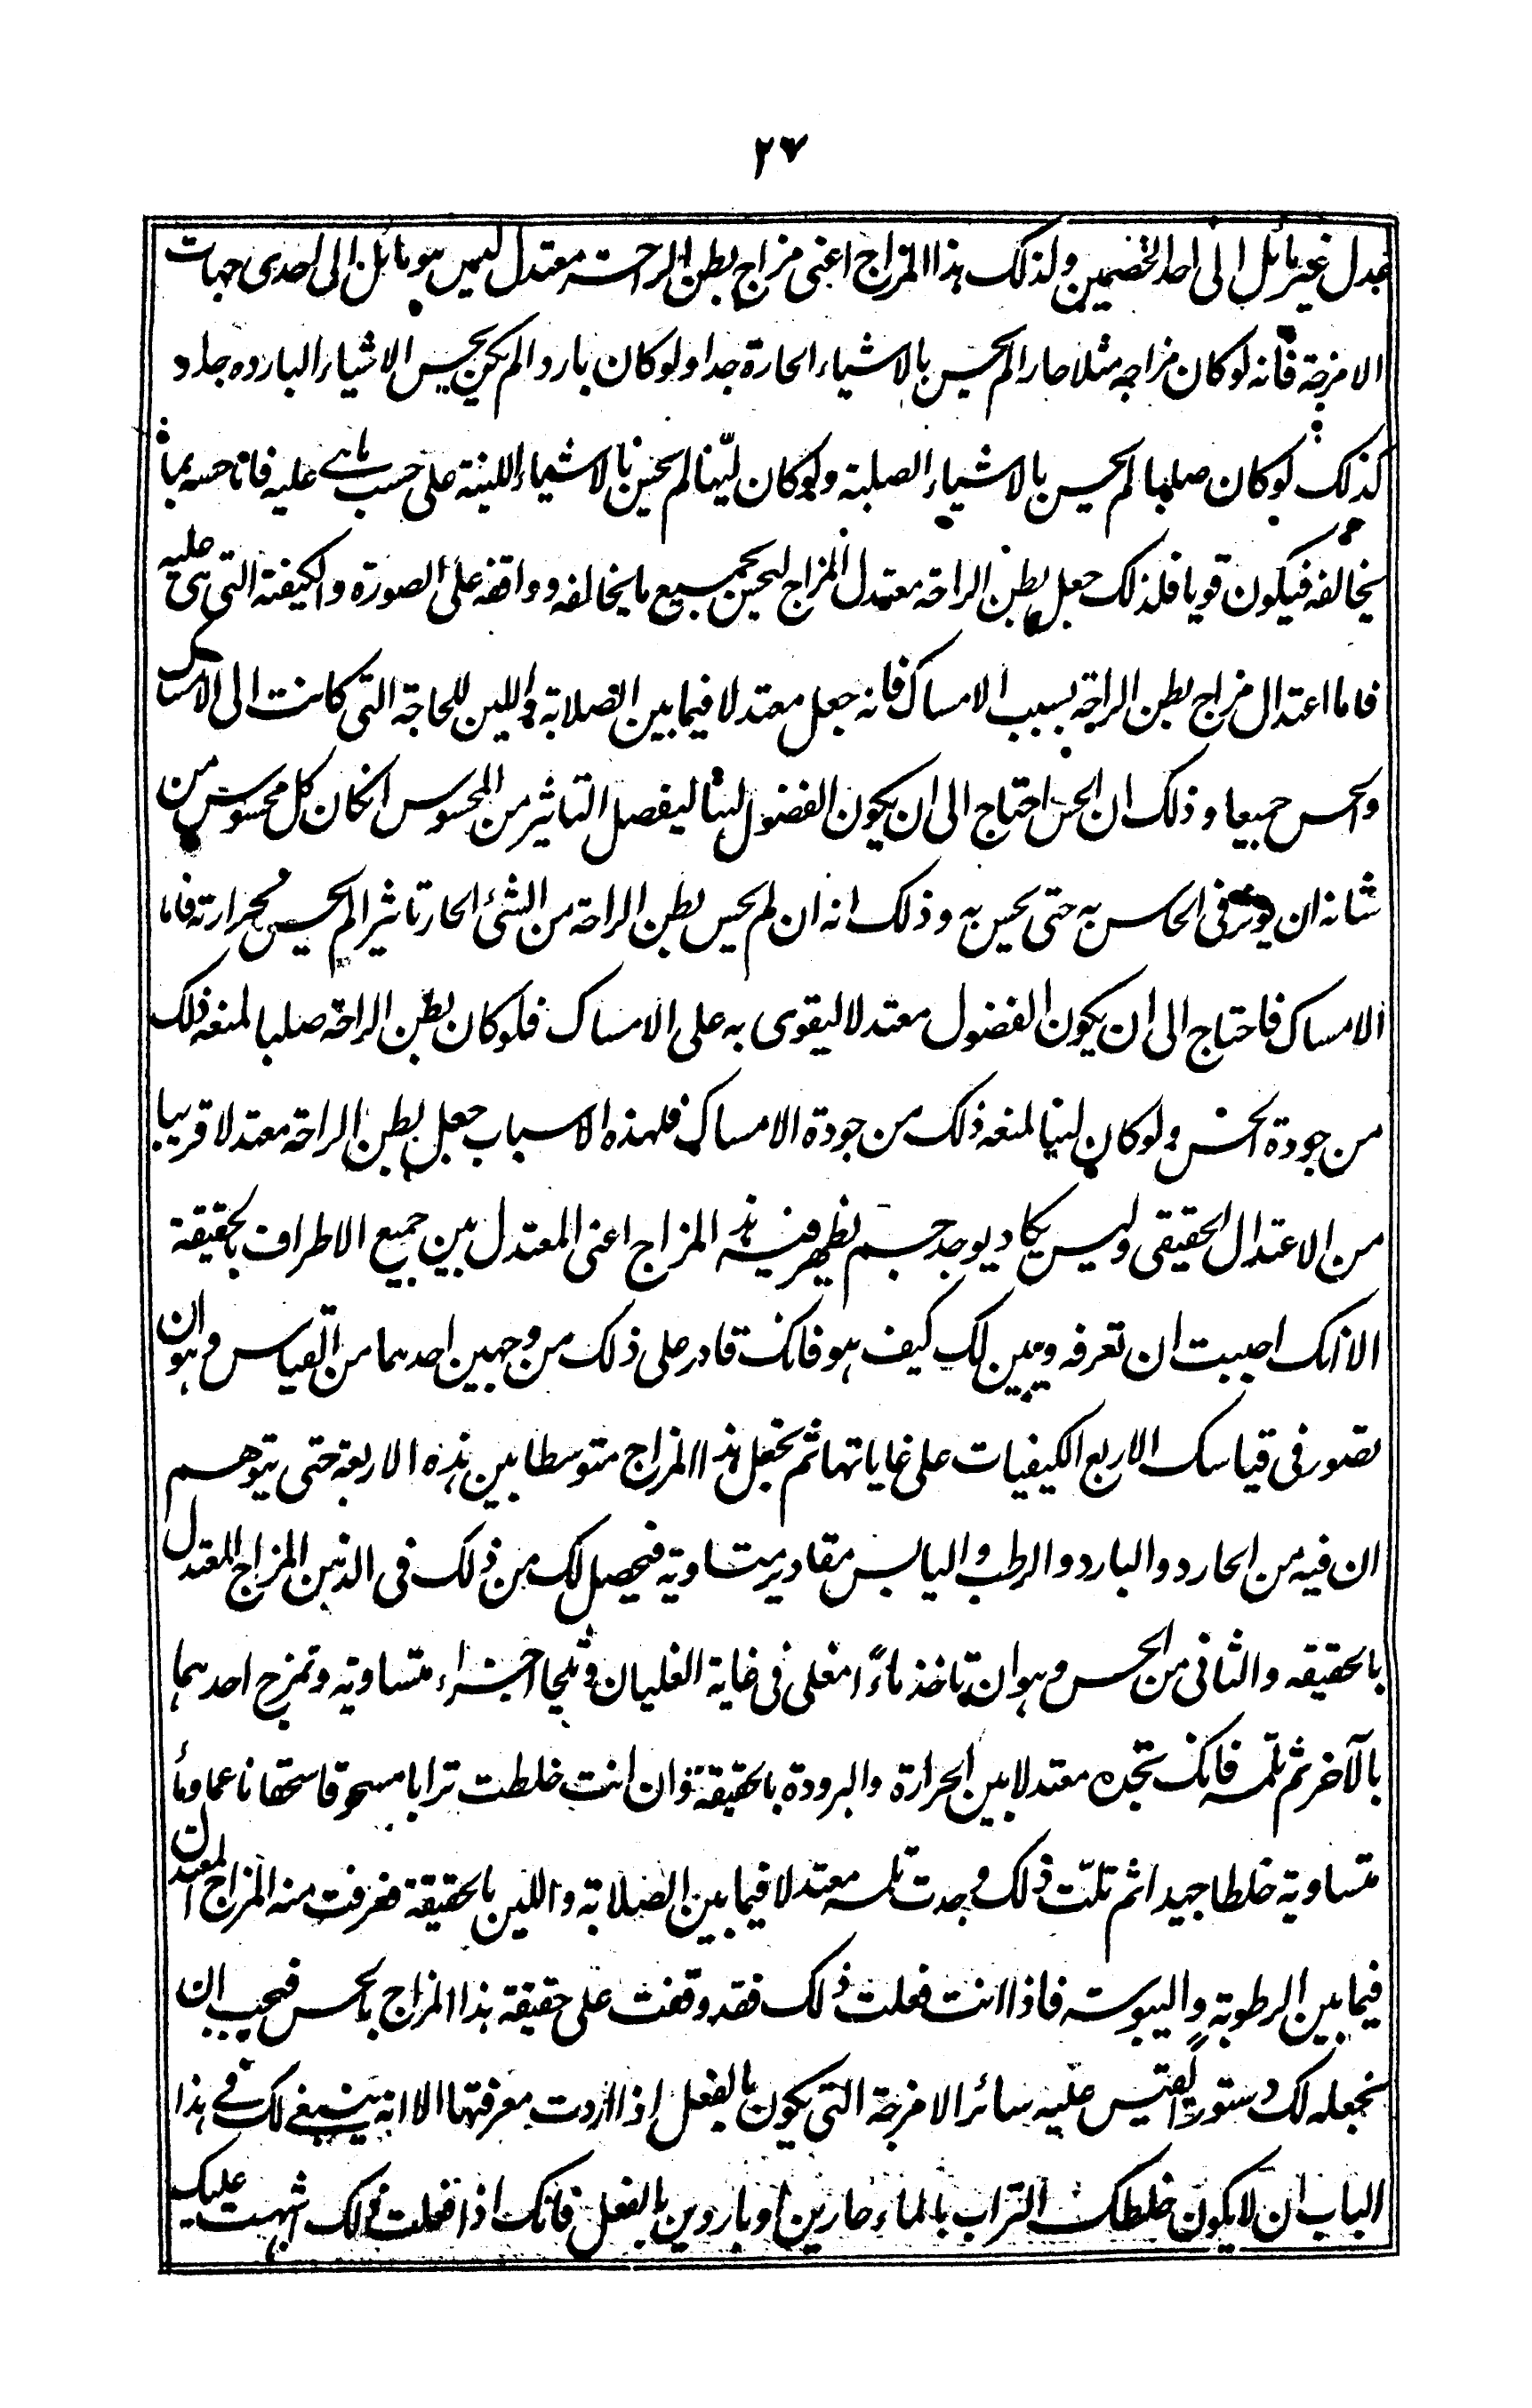 ٢٧
عدل غير مائل الى احد الخصمين ولذلك هذا المزاج اعنى مزاج بطن الراحة معتدل ليس هو مائل الى احدى جهات
الامزجة فانه لو كان مزاجه مثلا حارا لم يحس بالاشياء الحارة جدا ولو كان باردا لم يكن يحس الاشياء البارده جدا و
كذلك لو كان صلبا لم يحس بالاشياء الصلبة ولو كان لينا لم يحس بالاشياء اللينة على حسب ما هى عليه فاما حسه بما
يخالفه فيكون قويا فلذلك جعل بطن الراحة معتدل المزاج ليحس بجميع ما يخالفه ووافقه على الصورة والكيفية التى هى عليه
فاما اعتدال مزاج بطن الراحة بسبب الامساك فانه جعل معتدلا فيما بين الصلابة واللين للحاجة التى كانت الى الامساك
والحس جميعا وذلك ان الحس احتاج الى ان يكون الفضول لينا ليفصل التاثير من المحسوس اذ كان كل محسوس من
شانه ان يوثر فى الحاس به حتى يحس به وذلك انه ان لم يحس بطن الراحة من الشئ الحار تاثيرا لم يحس بحرارته فاما
الامساك فاحتاج الى ان يكون الفضول معتدلا ليقوى به على الامساك فلو كان بطن الراحة صلبا لمنعه ذلك
من جودة الحس ولو كان لينا لمنعه ذلك من جودة الامساك فلهذه الاسباب جعل بطن الراحة معتدلا قريبا
من الاعتدال الحقيقى وليس يكاد يوجد جسم يظهر فيه هذا المزاج اعنى المعتدل بين جميع الاطراف بالحقيقة
الا انك احببت ان تعرفه ويبين لك كيف هو فانك قادر على ذلك من وجهين احدهما من القياس وهو ان
تصور فى قياسك الاربع الكيفيات على غاياتها ثم تجعل هذا المزاج متوسطا بين هذه الاربعة حتى يتوهم
ان فيه من الحار د والبارد والرطب واليابس مقادير متساوية فيحصل لك من ذلك فى الذهن المزاج المعتدل
بالحقيقه والثانى من الحس وهو ان تاخذ ماءً امغلى فى غاية الغليان وثلجا اجزاء متساوية وتمزج احدهما
بالآخر ثم تلمسه فانك تجده معتدلا بين الحرارة والبرودة بالحقيقة وان انت خلطت ترابا مسحوقا سحقا ناعما وماء
متساوية خلطا جيدا ثم تلمّت ذلك وجدت تلمسه معتدلا فيما بين الصلابة واللين بالحقيقة فعرفت منه المزاج المعتدل
فيما بين الرطوبة واليبوسه فاذا انت فعلت ذلك فقد وقفت على حقيقة هذا المزاج بالحس فيجب ان
تجعله لك دستورا لتقيس عليه سائر الامزجة التى يكون بالفعل اذا اردت معرفتها الا انه ينبغى لك فى هذا
الباب ان لا يكون خلطك التراب بالماء حارين او باردين بالفعل فانك اذا فعلت ذلك اشبهت عليك